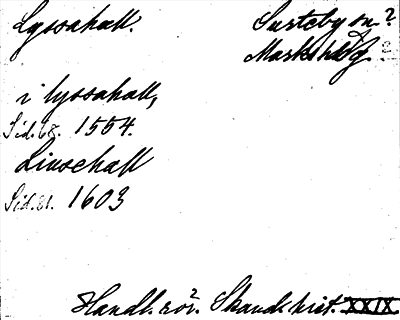 Lyssahall.
Susteby sn?
Marks hd
i lyssahall,
Sid. 68. 1554.
Liusehall
Sid. 81. 1603
Handl. rör. Skand. hist. XXIX.